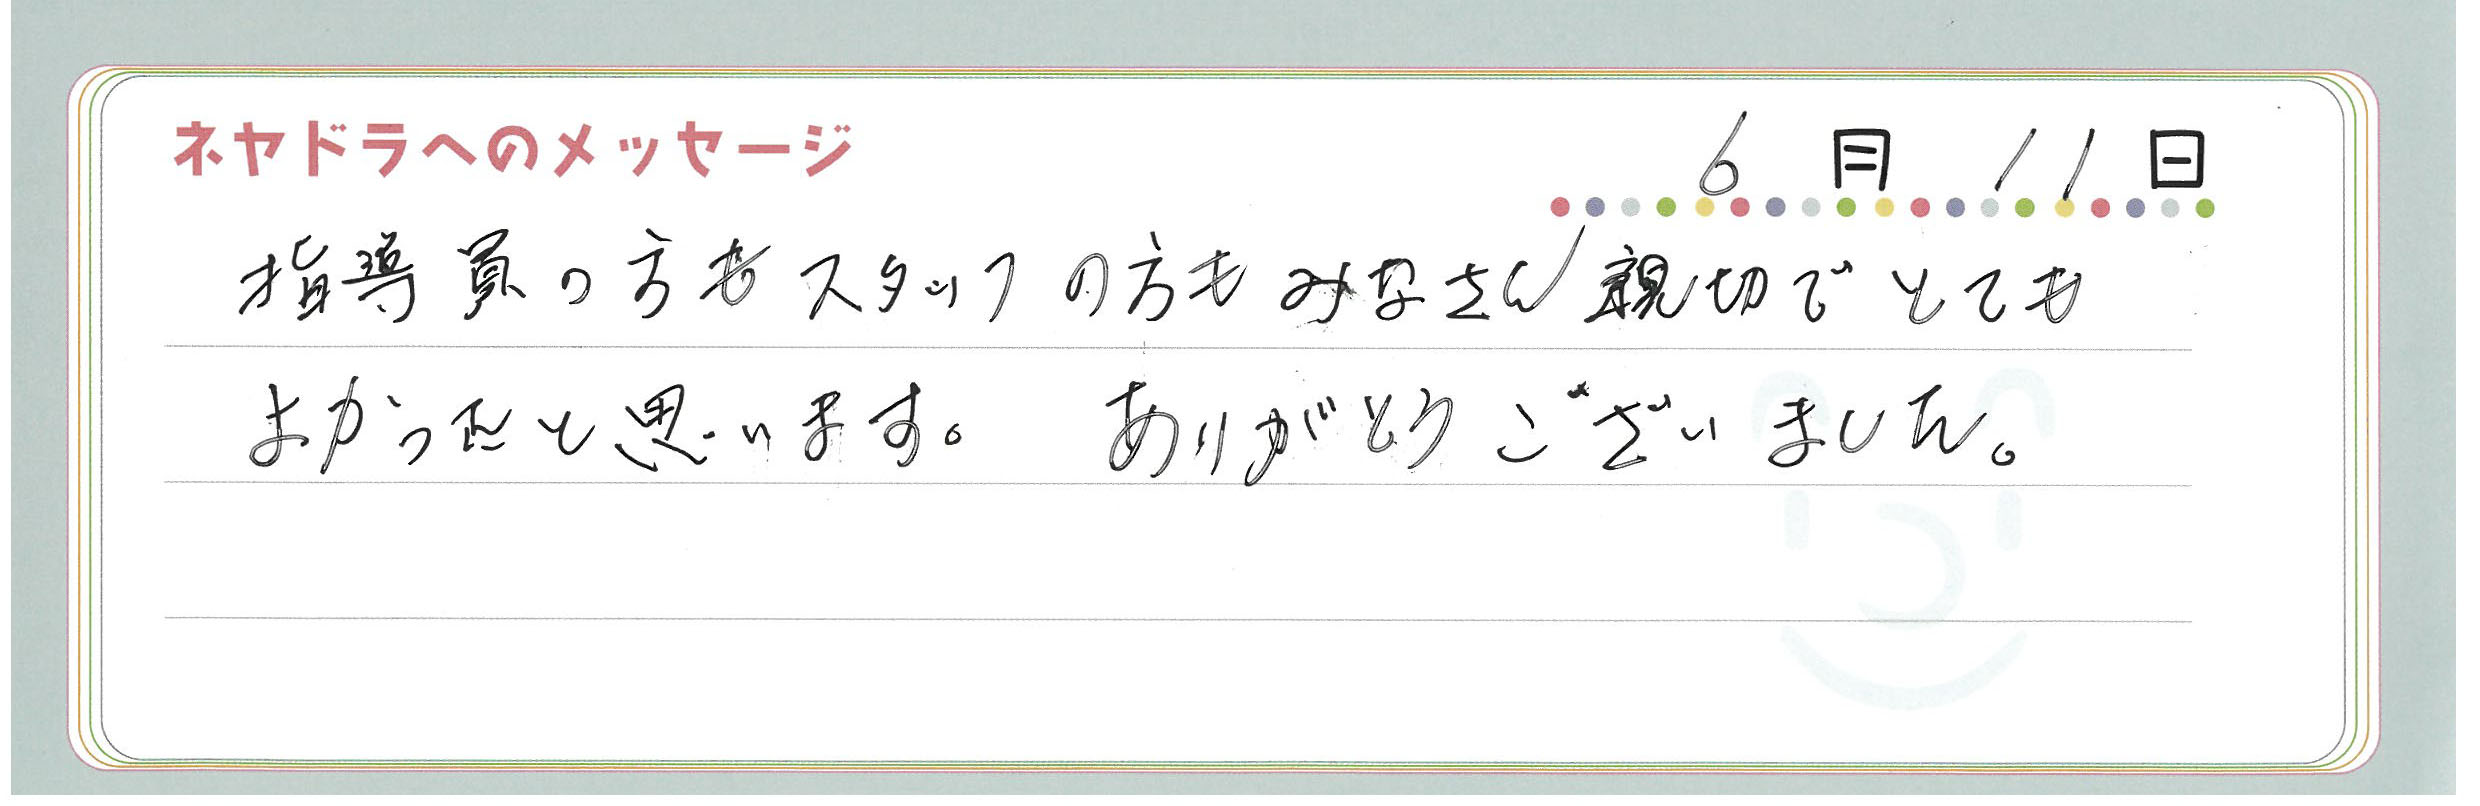 ネヤドラへのメッセージ 6月11日
指導員の方もスタッフの方もみなさん親切でとても
よかったと思います。 ありがとうございました。